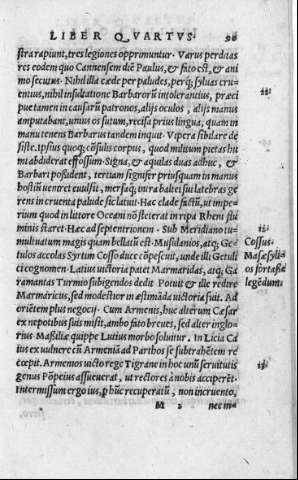 LIBER QVARTVS 90
stra rapiunt, tres legiones opprimuntur. Varus perditas
res eodem quo Cannensem diē Paulus, & fato est, & ani
mo secutus. Nihil illa cæde per paludes, perq; syluas cru
entius, nihil insultatione Barbarorū intolerantius, præci
pue tamen in causarū patronos, alijs oculos, alijs manus
amputabant, unius os sutum, recisa prius lingua, quam in
manu tenens Barbarus tandem inquit. Vipera sibilare de
siste. Ipsius quoq; cōsulis corpus, quod militum pietas hu
mi abdiderat effossum. Signa, & aquilas duas adhuc, &
Barbari possident, tertiam signifer priusquam in manus
hostiū uenret euulsit, mersaq; intra baltei sui latebras ge
rens in cruenta palude sic latuit. Hac clade factū, ut impe
rium quod in littore Oceani nō steterat in ripa Rheni flu
minis staret. Hæc ad septentrionem. Sub Meridiano tu=
multuatum magis quam bellatū est. Musulanios, atq; Ge
tulos accolas Syrtium Cosso duce cōpescuit, unde illi Getuli
ci cognomen. Latius uictoria patet Marmaridas, atq; Ga
ramantas Turmio subigendos dedit. Potuit & ille redire
Marmaricus, sed modestior in æstimāda uictoria fuit. Ad
oriētem plus negocij. Cum Armenis, huc alterum Cæsar
ex nepotibus suis misit, ambo fato breues, sed alter inglo=
rius. Maßiliæ quippe Lutius morbo soluitur. In Licia Ca
ius ex uulnere cū Armeniā ad Parthos se subtrahētem re
cœpit. Armenios uicto rege Tigrane in hoc unū seruitutis
genus Pōpeius assueuerat, ut rectores à nobis acciperēt.
Intermissum ergo ius, p̄ hūc recuperatū, non incruento,
M 2 nec in=
Cossus.
Masæsyli=
os fortasse
legēdum.